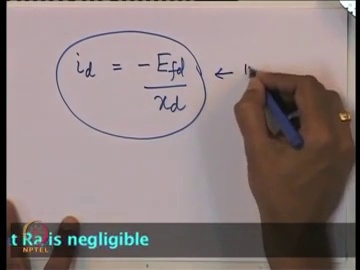 i_d = - E_fd / x_d ←
t Ra is negligible
NPTEL